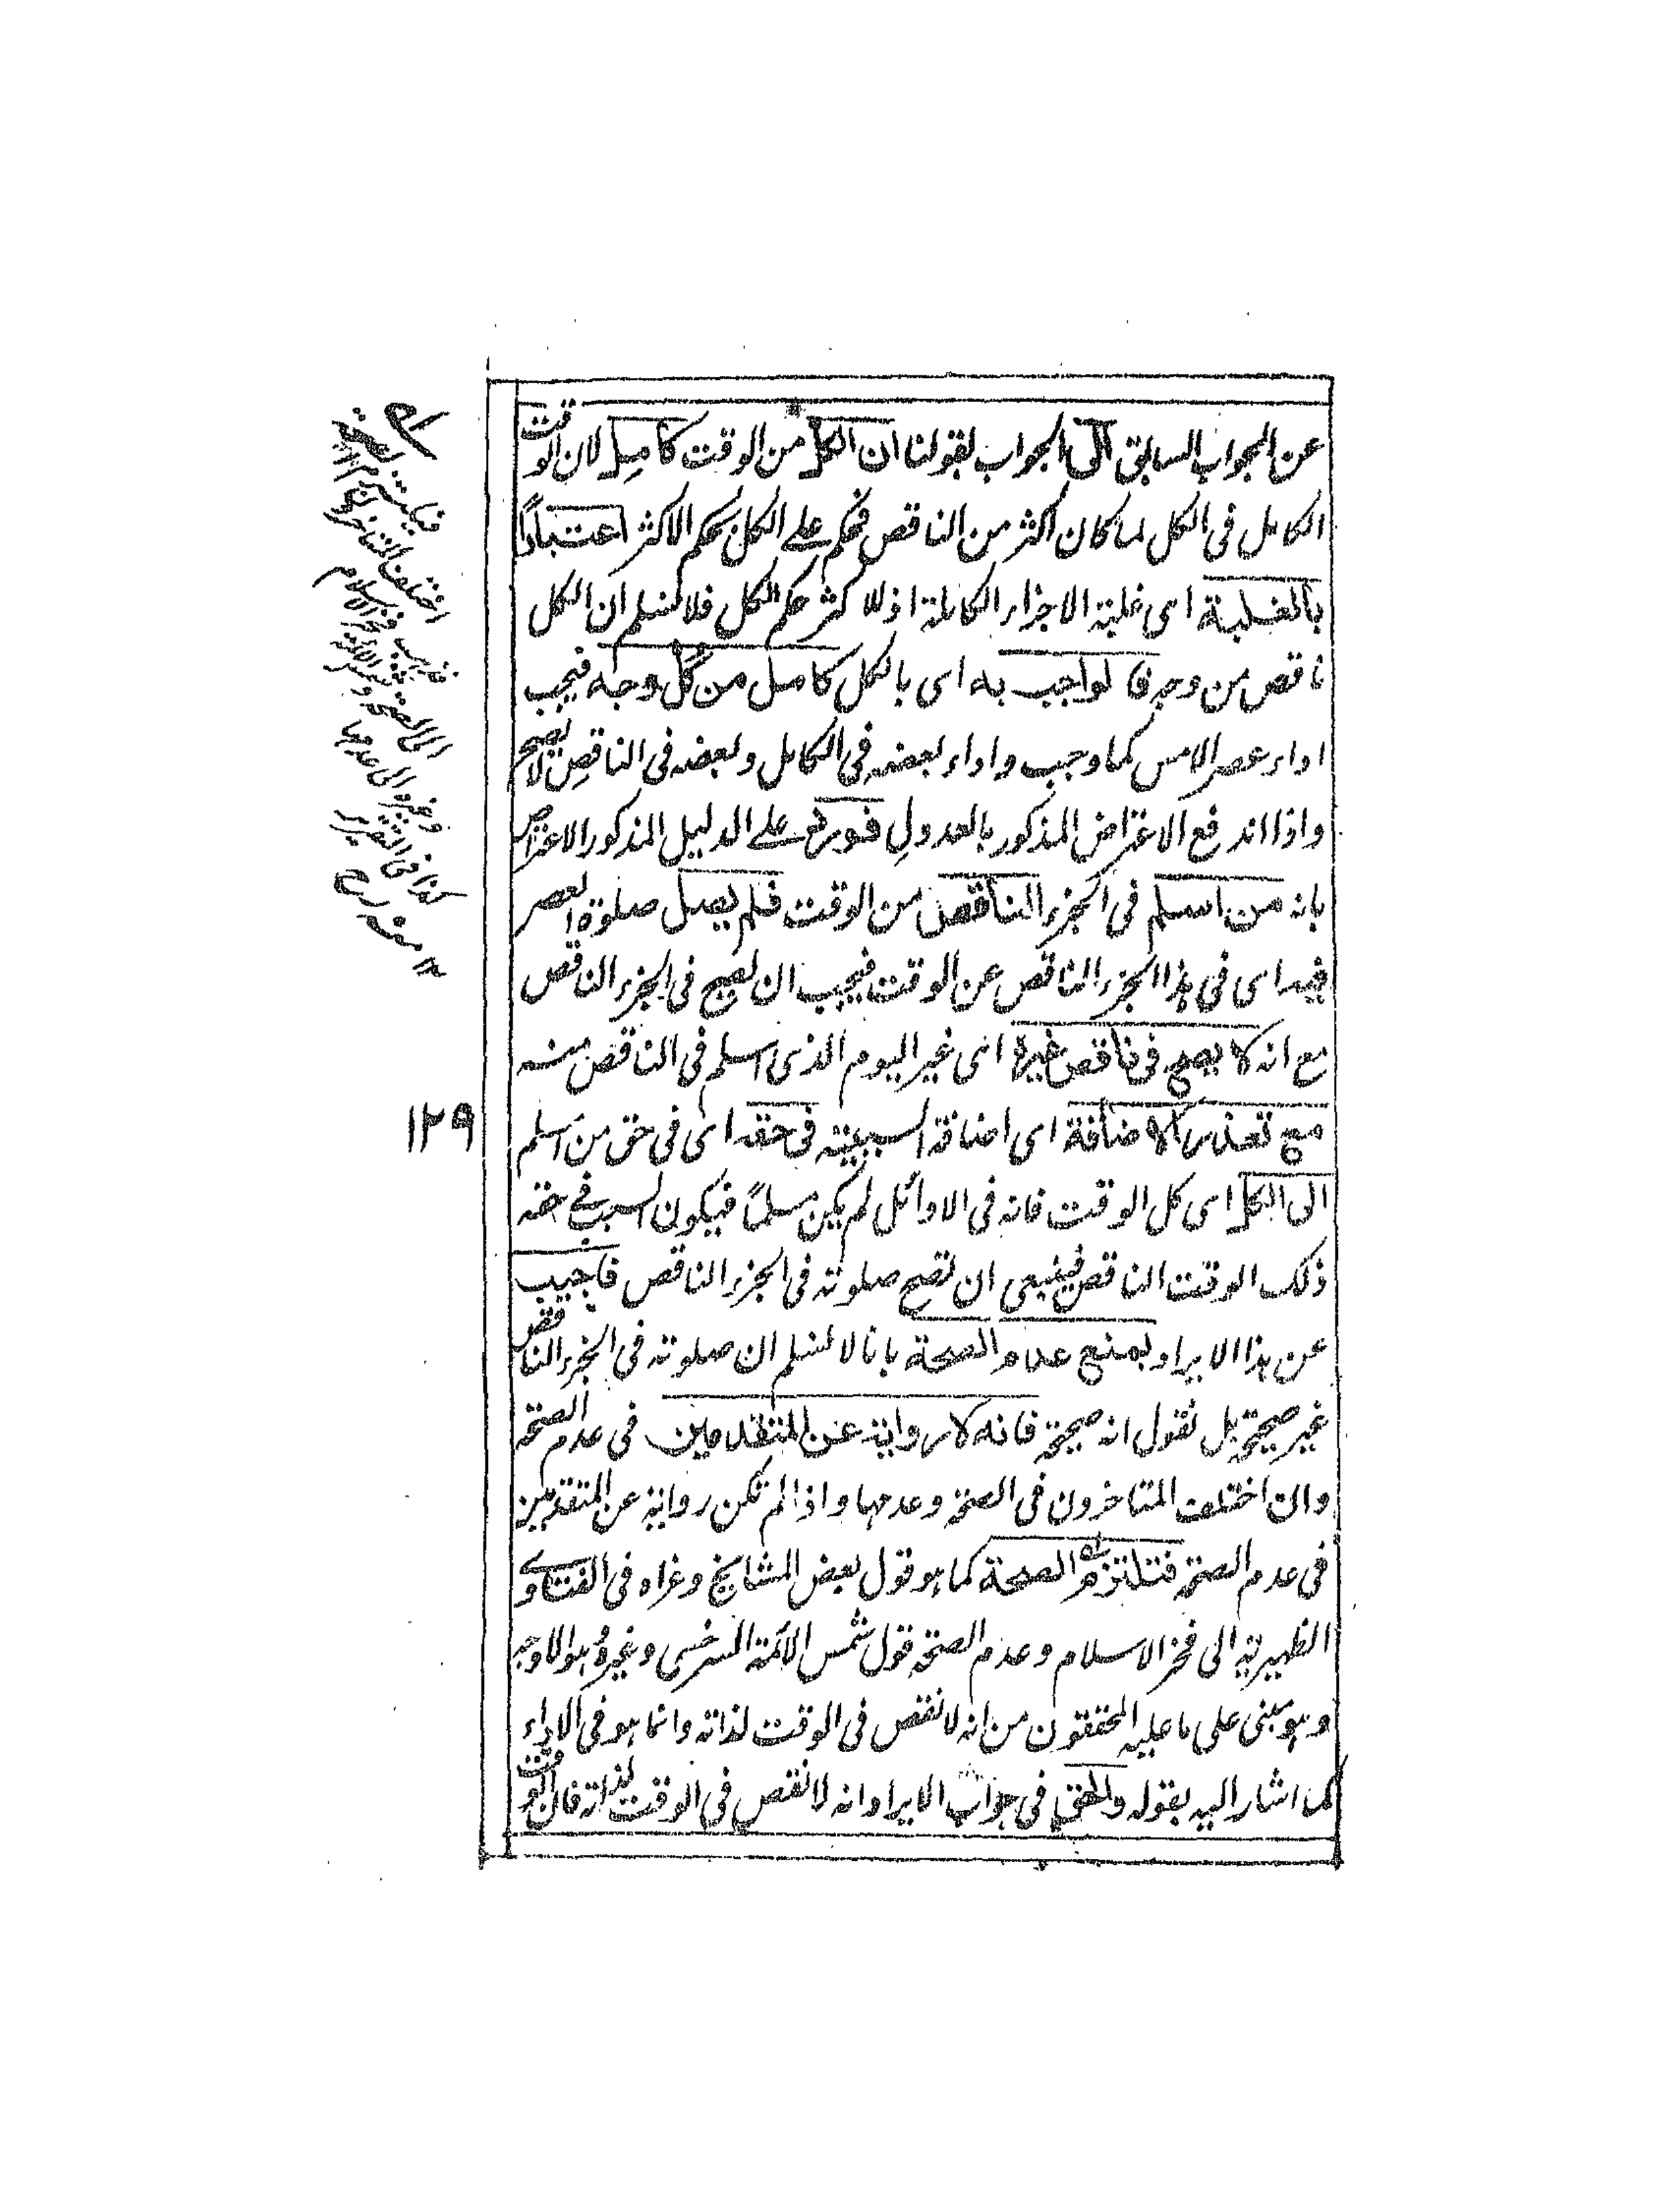 عن الجواب السابق الى الجواب بقولنا ان الكل من الوقت كامل لان الوقت
الكامل فى الكل لما كان اكثر من الناقص فحكم على الكل بحكم الاكثر اعتبارًا
بالغلبة اى غلبة الاجزاء الكاملة اذ للاكثر حكم الكل فلا نسلم ان الكل
ناقص من وجه فالواجب به اى بالكل كامل من كل وجه فيجب
اداء عصر الامس كما وجب واداء بعضه فى الكامل وبعضه فى الناقص لا يصح
واذا اندفع الاعتراض المذكور بالعدول فورد على الدليل المذكور الاعتراض
بانه من اسلم فى الجزء الناقص من الوقت فلم يصل صلوة العصر
فيه اى فى هذا الجزء الناقص عن الوقت فيجب ان يصح فى الجزء الناقص
مع انه لا يصح فى ناقص غيره اى غير اليوم الذى اسلم فى الناقص منه
مع تعذر الاضافة اى اضافة السببية فى حقه اى فى حق من اسلم
١٢٩
الى الكل اى كل الوقت فانه فى الاوائل لم يكن مسلمًا فيكون السبب فى حقه
ذلك الوقت الناقص فينبغى ان تصح صلوته فى الجزء الناقص فاجيب
عن هذا الايراد بمنع عدم الصحة بانا لا نسلم ان صلوته فى الجزء الناقص
غير صحيحة بل نقول انه صحيحة فانه لا رواية عن المتقدمين فى عدم الصحة
وان اختلف المتاخرون فى الصحة وعدمها واذا لم تكن رواية عن المتقدمين
فى عدم الصحة فتلتزم الصحة كما هو قول بعض المشايخ وعزاه فى الفتاوى
الظهيرية الى فخر الاسلام وعدم الصحة قول شمس الائمة السرخسى وغيره وهو الاوجه
وهو مبنى على ما عليه المحققون من انه لا نقص فى الوقت لذاته وانما هو فى الاداء
كما اشار اليه بقوله والحق فى جواب الايراد انه لا نقص فى الوقت لذاته فان الوقت
اختلف المتاخرون
فذهب فخر الاسلام
الى الصحة وشمس الائمة
وغيره الى عدمها
كذا فى التقرير
١٢ منه رح